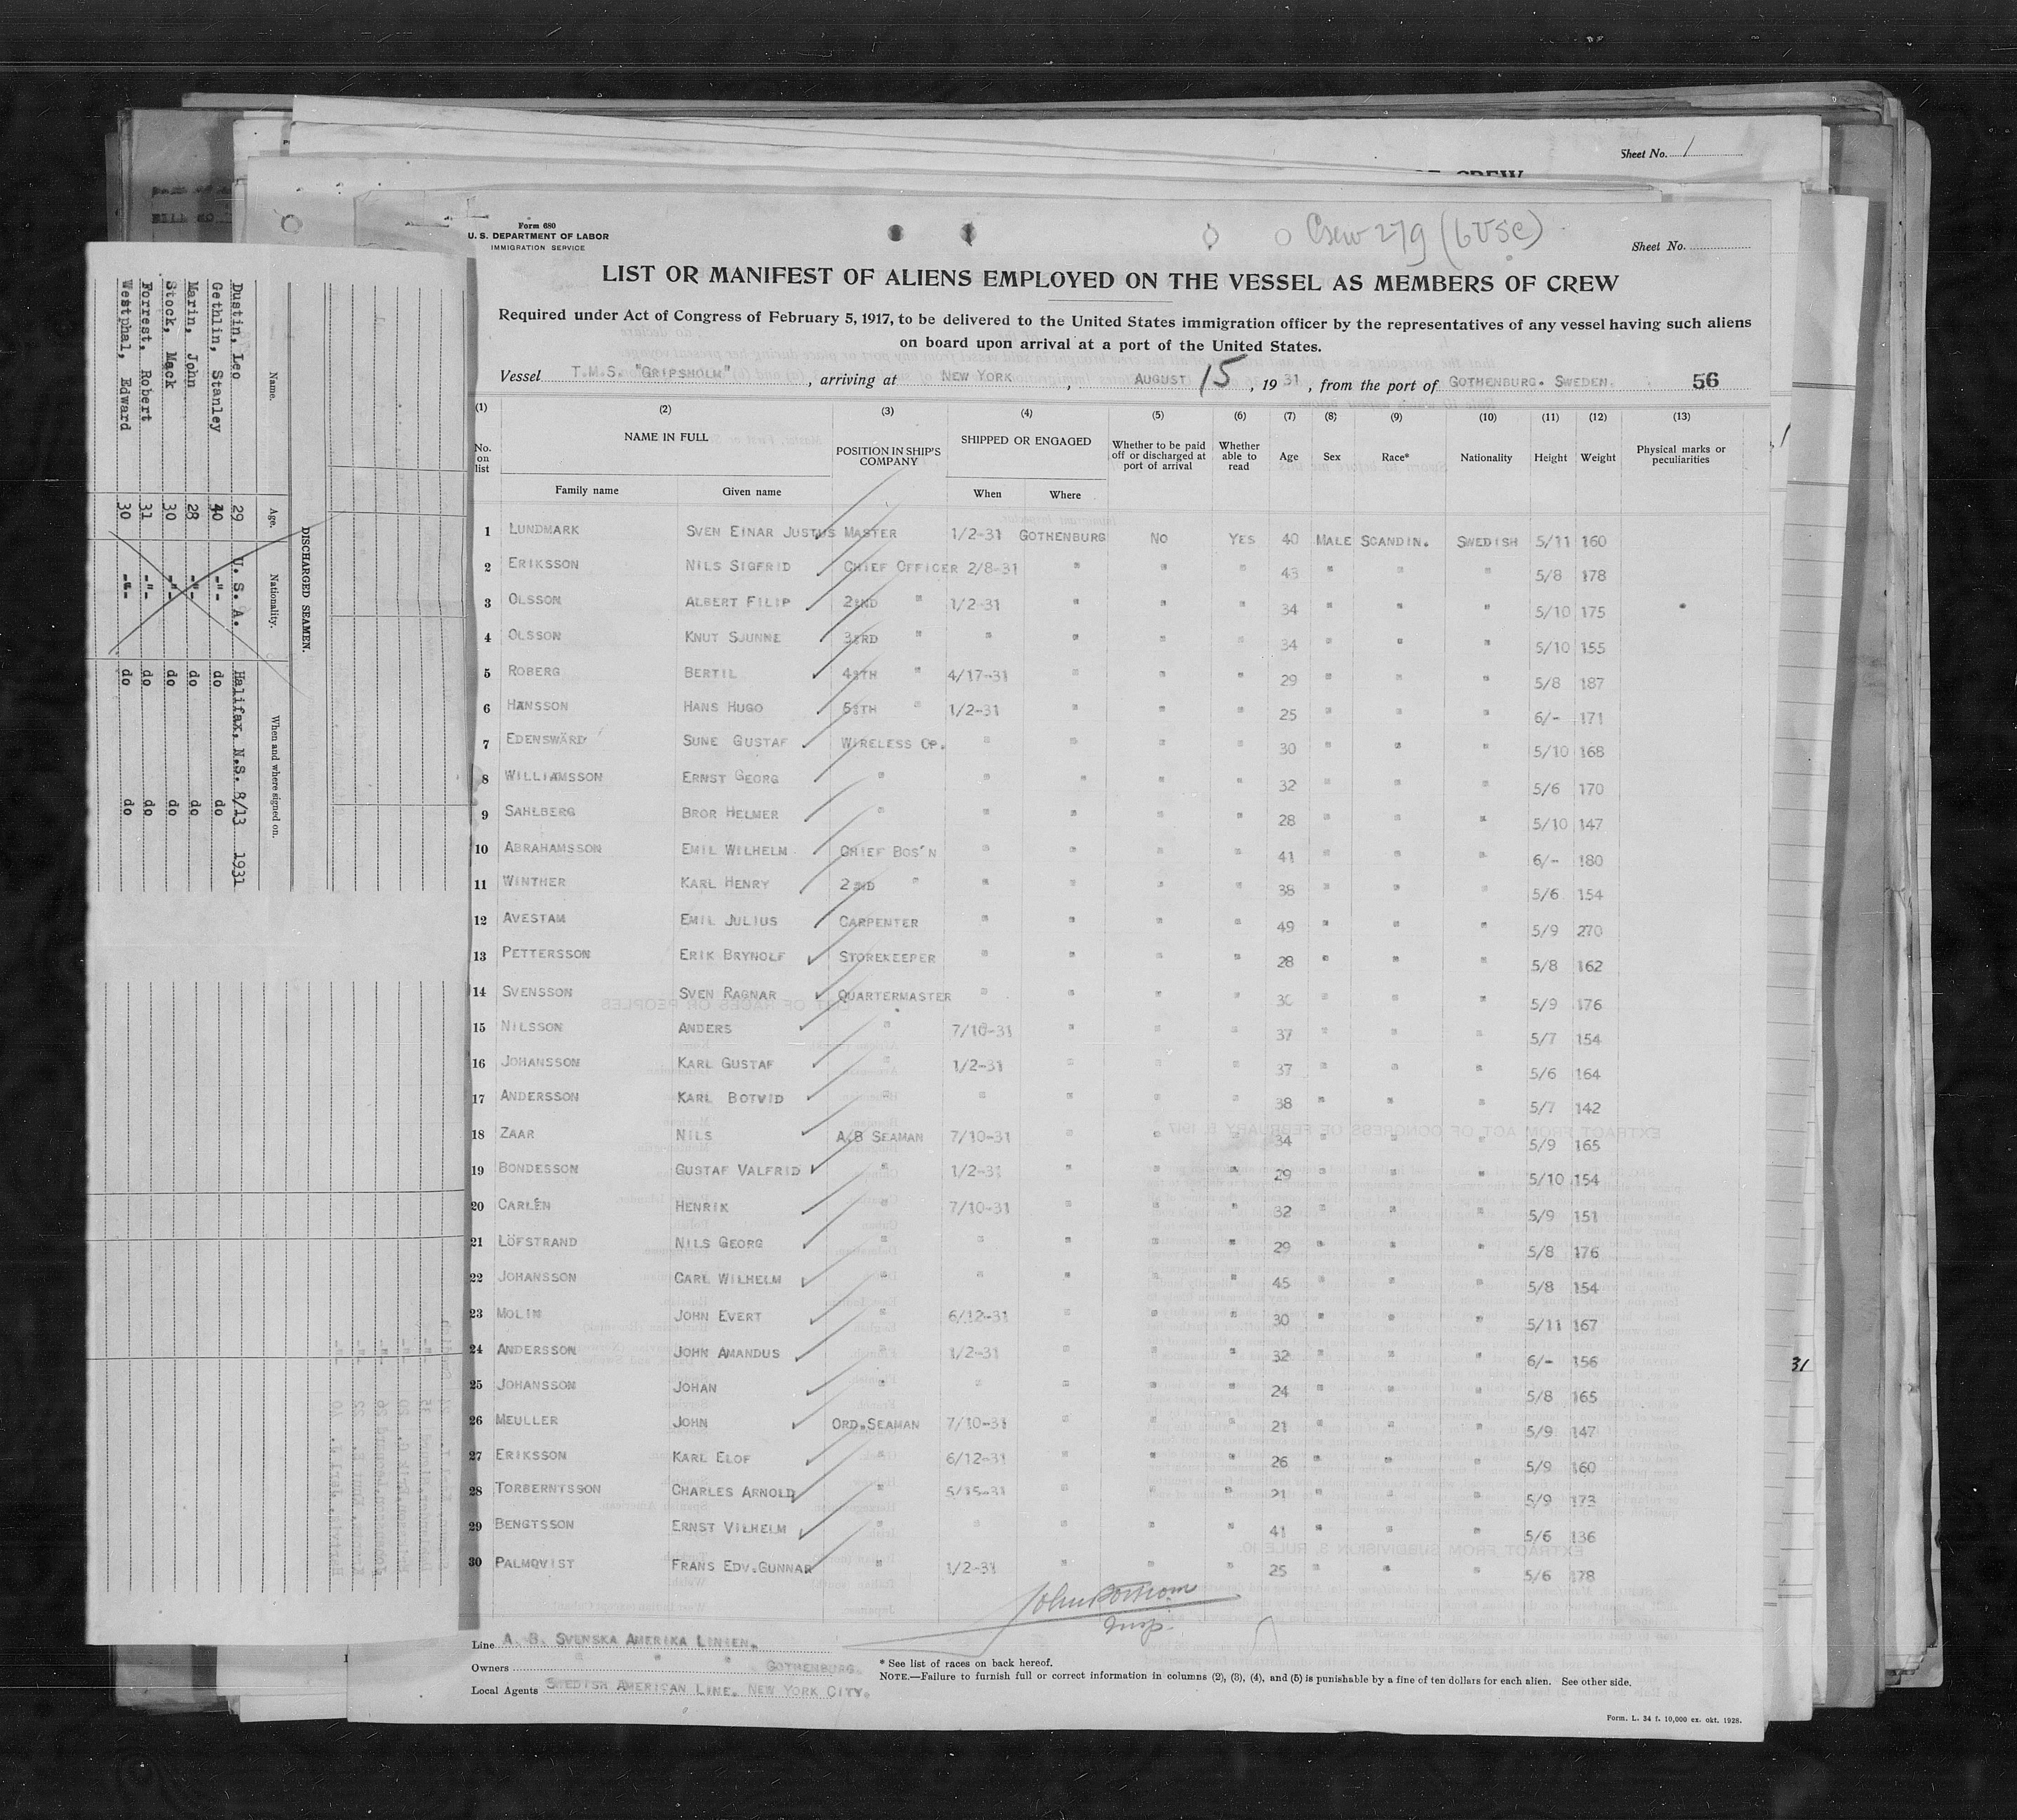 Sheet No. 1
Form 680
U. S. DEPARTMENT OF LABOR
IMMIGRATION SERVICE
Crew 279 (6 USC)
Sheet No.
LIST OR MANIFEST OF ALIENS EMPLOYED ON THE VESSEL AS MEMBERS OF CREW
Required under Act of Congress of February 5, 1917, to be delivered to the United States immigration officer by the representatives of any vessel having such aliens
on board upon arrival at a port of the United States.
Vessel T.M.S. "GRIPSHOLM", arriving at NEW YORK, AUGUST 15, 1931, from the port of GOTHENBURG. SWEDEN. 56
(1) (2) (3) (4) (5) (6) (7) (8) (9) (10) (11) (12) (13)
No. on list NAME IN FULL POSITION IN SHIP'S COMPANY SHIPPED OR ENGAGED Whether to be paid off or discharged at port of arrival Whether able to read Age Sex Race* Nationality Height Weight Physical marks or peculiarities
Family name Given name When Where
1 LUNDMARK SVEN EINAR JUSTUS MASTER 1/2-31 GOTHENBURG NO YES 40 MALE SCANDIN. SWEDISH 5/11 160
2 ERIKSSON NILS SIGFRID CHIEF OFFICER 2/8-31 " " " 43 " " " 5/8 178
3 OLSSON ALBERT FILIP 2:ND " 1/2-31 " " " 34 " " " 5/10 175
4 OLSSON KNUT SJUNNE 3:RD " " " " " 34 " " " 5/10 155
5 ROBERG BERTIL 4:TH " 4/17-31 " " " 29 " " " 5/8 187
6 HANSSON HANS HUGO 5:TH " 1/2-31 " " " 25 " " " 6/- 171
7 EDENSWÄRD SUNE GUSTAF WIRELESS OP. " " " " 30 " " " 5/10 168
8 WILLIAMSSON ERNST GEORG " " " " " 32 " " " 5/6 170
9 SAHLBERG BROR HELMER " " " " " 28 " " " 5/10 147
10 ABRAHAMSSON EMIL WILHELM CHIEF BOS'N " " " " 41 " " " 6/- 180
11 WINTHER KARL HENRY 2:ND " " " " " 38 " " " 5/6 154
12 AVESTAM EMIL JULIUS CARPENTER " " " " 49 " " " 5/9 270
13 PETTERSSON ERIK BRYNOLF STOREKEEPER " " " " 28 " " " 5/8 162
14 SVENSSON SVEN RAGNAR QUARTERMASTER " " " " 30 " " " 5/9 176
15 NILSSON ANDERS " 7/10-31 " " " 37 " " " 5/7 154
16 JOHANSSON KARL GUSTAF " 1/2-31 " " " 37 " " " 5/6 164
17 ANDERSSON KARL BOTVID " " " " " 38 " " " 5/7 142
18 ZAAR NILS A/B SEAMAN 7/10-31 " " " 34 " " " 5/9 165
19 BONDESSON GUSTAF VALFRID " 1/2-31 " " " 29 " " " 5/10 154
20 CARLÉN HENRIK " 7/10-31 " " " 32 " " " 5/9 151
21 LÖFSTRAND NILS GEORG " " " " " 29 " " " 5/8 176
22 JOHANSSON CARL WILHELM " " " " " 45 " " " 5/8 154
23 MOLIN JOHN EVERT " 6/12-31 " " " 30 " " " 5/11 167
24 ANDERSSON JOHN AMANDUS " 1/2-31 " " " 32 " " " 6/- 156
25 JOHANSSON JOHAN " " " " " 24 " " " 5/8 165
26 MEULLER JOHN ORD.SEAMAN 7/10-31 " " " 21 " " " 5/9 147
27 ERIKSSON KARL ELOF " 6/12-31 " " " 26 " " " 5/9 160
28 TORBERNTSSON CHARLES ARNOLD " 5/15-31 " " " 21 " " " 5/9 173
29 BENGTSSON ERNST VILHELM " " " " " 41 " " " 5/6 136
30 PALMQVIST FRANS EDV.GUNNAR " 1/2-31 " " " 25 " " " 5/6 178
Insp.
Line A. B. SVENSKA AMERIKA LINIEN.
Owners " " " GOTHENBURG.
Local Agents SWEDISH AMERICAN LINE. NEW YORK CITY.
* See list of races on back hereof.
NOTE.—Failure to furnish full or correct information in columns (2), (3), (4), and (5) is punishable by a fine of ten dollars for each alien. See other side.
Form. L. 34 f. 10,000 ex. okt. 1928.
31
DISCHARGED SEAMEN.
Name. Age. Nationality. When and where signed on.
Dustin, Leo 29 U. S. A. Halifax, N.S. 8/13 1931
Gethlin, Stanley 40 -"- do do
Marin, John 28 -"- do do
Stock, Mack 30 -"- do do
Forrest, Robert 31 -"- do do
Westphal, Edward 30 -"- do do